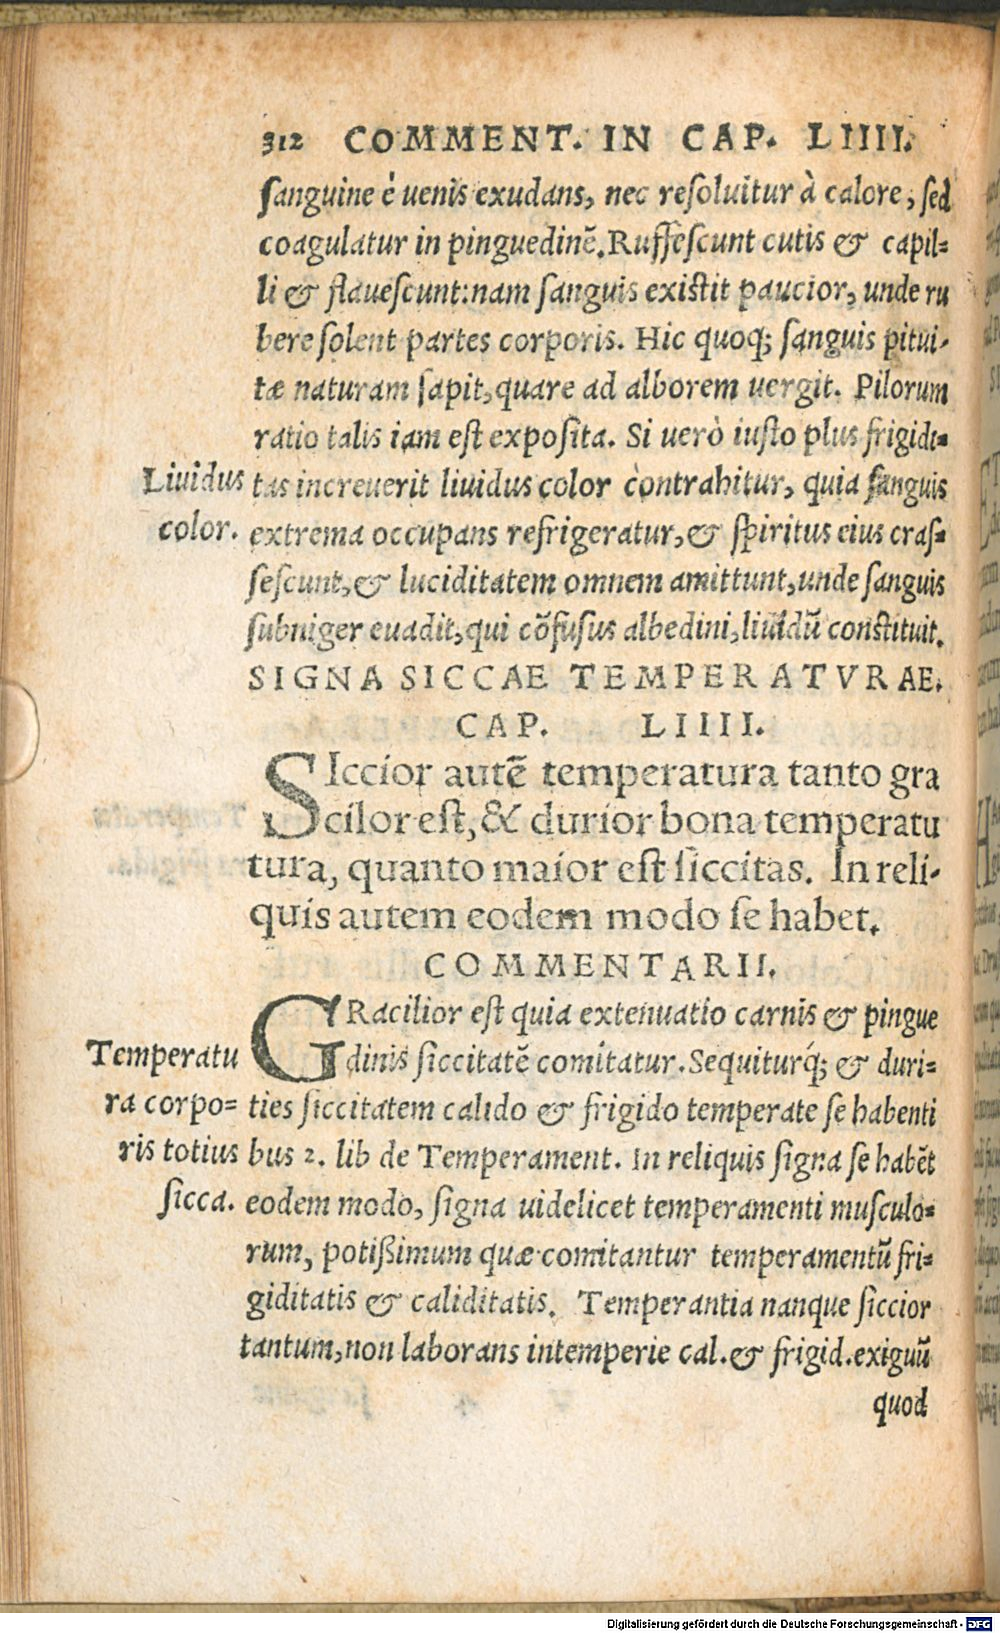 312 COMMENT. IN CAP. LIIII.
sanguine è uenis exudans, nec resoluitur à calore, sed
coagulatur in pinguedinē. Ruffescunt cutis & capil=
li & flauescunt: nam sanguis existit paucior, unde ru
bere solent partes corporis. Hic quoq; sanguis pitui-
tæ naturam sapit, quare ad alborem uergit. Pilorum
ratio talis iam est exposita. Si uerò iusto plus frigidi=
Liuidus
color.
tas increuerit liuidus color còntrahitur, quia sanguis
extrema occupans refrigeratur, & spiritus eius cras=
sescunt, & luciditatem omnem amittunt, unde sanguis
subniger euadit, qui cōfusus albedini, liuidū constituit.
SIGNA SICCAE TEMPERATVRAE.
CAP. LIIII.
SIccior autē temperatura tanto gra
cilor est, & durior bona temperatu
tura, quanto maior est siccitas. In reli-
quis autem eodem modo se habet.
COMMENTARII.
GRacilior est quia extenuatio carnis & pingue
dinis siccitatē comitatur. Sequiturq́; & duri=
Temperatu
ra corpo=
ris totius
sicca.
ties siccitatem calido & frigido temperate se habenti
bus 2. lib de Temperament. In reliquis signa se habēt
eodem modo, signa uidelicet temperamenti musculo=
rum, potißimum quæ comitantur temperamentū fri=
giditatis & caliditatis. Temperantia nanque siccior
tantum, non laborans intemperie cal. & frigid. exiguū
quod
Digitalisierung gefördert durch die Deutsche Forschungsgemeinschaft - DFG